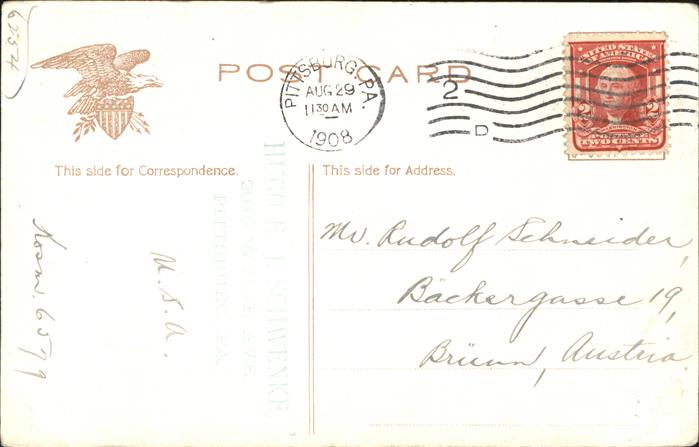 6257
POST CARD
PITTSBURG, PA.
AUG 29
11 30 AM
1908
2
D
UNITED STATES
OF AMERICA
2 2
WASHINGTON
TWO CENTS
This side for Correspondence.
This side for Address.
HUGO E. J. SCHWENKE
2040 WYLIE AVE.
PITTSBURG, PA.
U. S. A.
Kosm. 6579
Mr. Rudolf Schneider,
Bäckergasse 19,
Brünn, Austria.